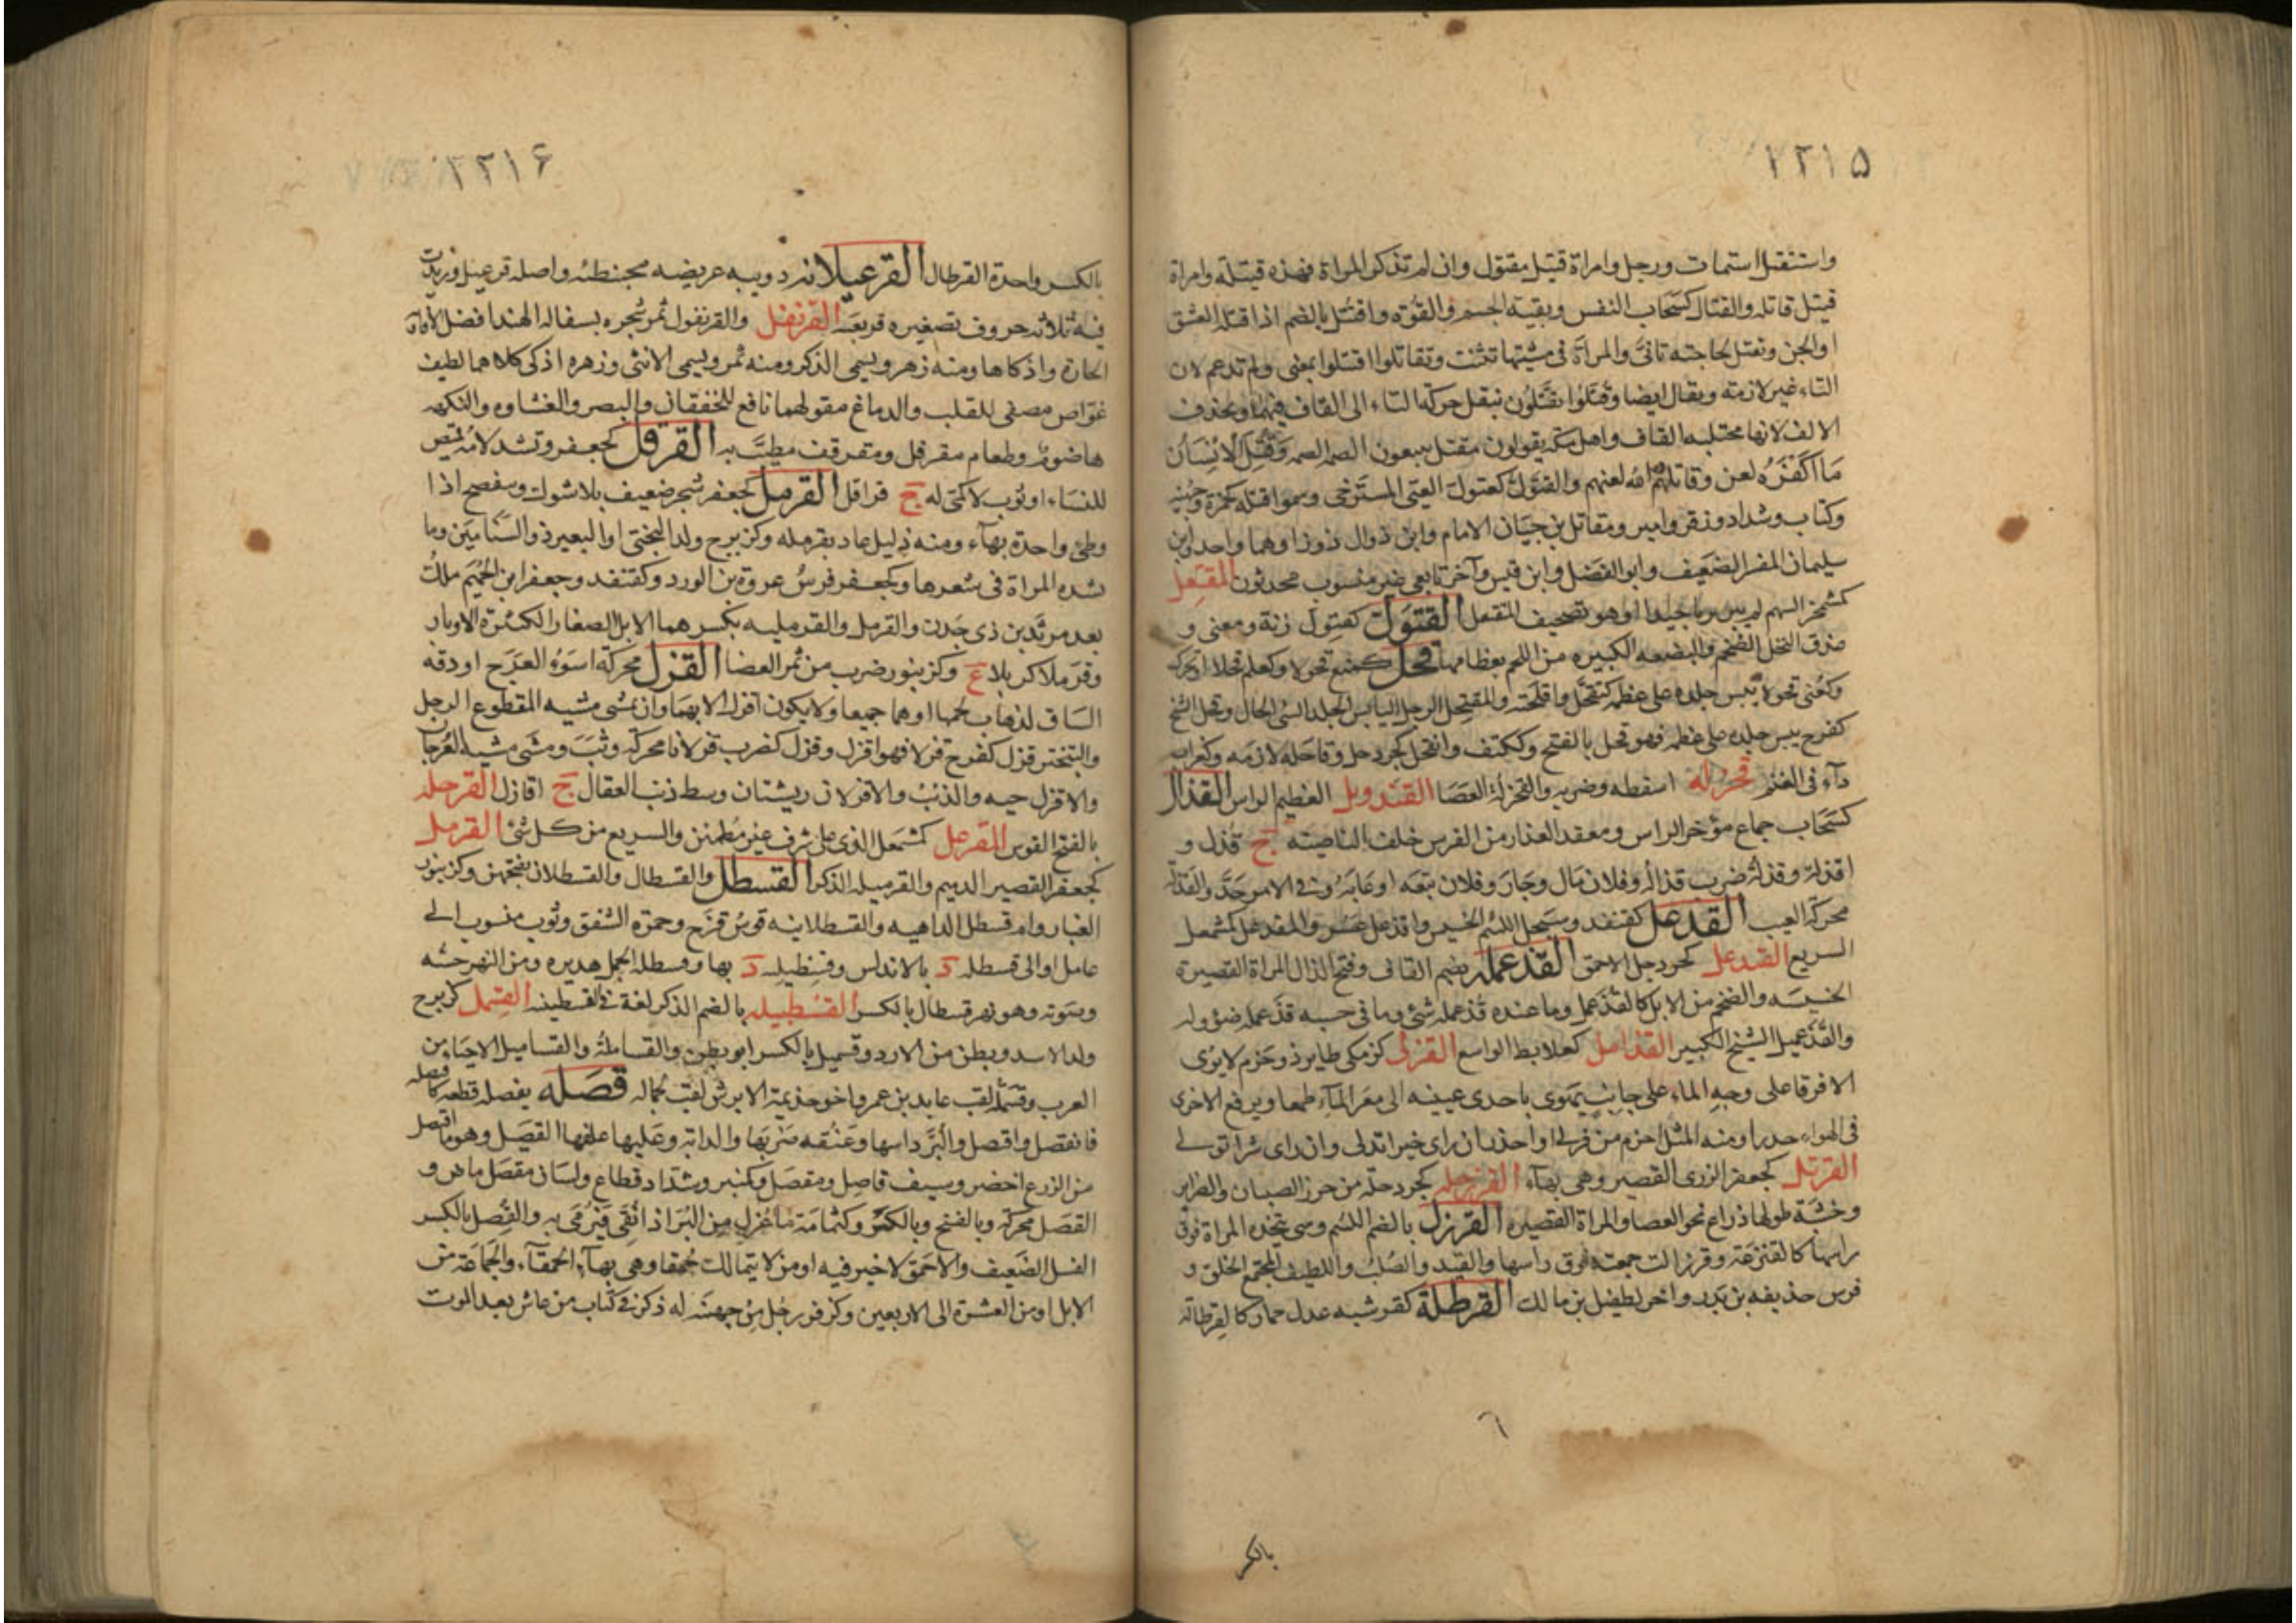 ١٢١٥
واستقتل استمات ورجل وامراة قتيل مقتول وان لم تذكر المراة فهذه قتيلة وامراة
قتيل قاتله والقتال كسحاب النفس وبقيته الجسم والقوه واقتتل بالضم اذا قتله العشق
او الجن وتقتل لحاجته تانى والمراة فى مشيتها تثنت وتقاتلوا اقتتلوا بمعنى ولم تدغم لان
التاء غير لازمته ويقال ايضا وقتلوا يقتلون بنقل حركة التاء الى القاف فيهما وتحذف
الالف لانها مجتلبه القاف واهل مكه يقولون مقتل يتبعون الضمه الضمه وقتل الانسان
ما اكفره لعن وقاتلهم الله لعنهم والقتول كعتول العيى المسترخى وسموا قتله كحمزة وجهينه
وكتاب وشداد وزفر وامير ومقاتل بن حيان الامام وابن دوال دوز او هما واحد وابن
سليمان المفسر الضعيف وابو الفضل وابن قيس وآخر تابعى غير منسوب محدثون المقتعل
كمشمخر السهم لم يبر بريا جيدا او هو تصحيف المقثعل القثول كعثول زنة ومعنى و
عذق النخل الضخم والبضعه الكبيره من اللحم بعظامها قحل كمنع قحولا وكعلم قحلا ويحرك
وكعنى قحولا يبس جلده على عظمه كتقحل واقحلته والمتقحل الرجل اليابس الجلد السئ الحال وقحل الشيخ
كفرح يبس جلده على عظمه فهو قحل بالفتح وككتف وانقحل كجردحل وقاحله لازمه وكغراب
دآء فى الغنم قحزله اسقطه وضربه والقحزلة العصا القندويل العظيم الراس القذال
كسحاب جماع مؤخر الراس ومعقد العذار من الفرس خلف الناصيته ج قذل و
اقذلة وقذله ضرب قذاله وفلان مال وجار وفلان تبعه او عابه وفى الامر جد والقذل
محركة العيب القذعل كقنفذ وسبحل اللئيم الخسيس واقذعل عسر والمقذعل كمشمعل
السريع القندعل كجردحل الاحمق القذعمله بضم القاف وفتح الذال المراة القصيرة
الخسيسه والضخم من الابل كالقذعمل وما عنده قذعمله شئ وما فى حسبه قذعمله ضؤوله
والقذعميل الشيخ الكبير القذامل كعلابط الواسع القزلى كزمكى طاير ذو حزم لا يرى
الا فرقا على وجه الماء على جانب يهوى باحدى عينيه الى قعر المآء طمعا ويرفع الاخرى
فى الهواء حذرا ومنه المثل احزم من قرلى او احذر ان راى خيرا تدلى وان راى شرا تولى
القرثل كجعفر الزرى القصير وهى بهآء القرزحله كجردحلة من خرز الصبيان والضراير
وخشبة طولها ذراع نحو العصا والمراة القصيره القرزل بالضم اللئيم وشى تتخذه المراة فوق
راسها كالقنزعة وقرزلت جمعته فوق راسها والقيد والصلب واللطيف المجتمع الخلق و
فرس حذيفه بن بدر واخر لطفيل بن مالك القرطلة كقرشبه عدل حمار كالقرطالة
بالكسر
١٢١۶
بالكسر واحدة القرطال القرعبلانه دويبه عريضه محبنطئه واصله قرعبل وزيدت
فيه ثلاثه حروف تصغيره قريعبه القرنفل والقرنفول ثمر شجره بسفاله الهند افضل الافاويه
الحارة واذكاها ومنه زهر ويسمى الذكر ومنه ثمر ويسمى الانثى وزهره اذكى كلاهما لطيف
غواص مصفى للقلب والدماغ مقو لهما نافع للخفقان والبصر والغشاوه والنكهه
هاضوم وطعام مقرفل ومقرنف مطيب به القرقل كجعفر وتشد لامه قميص
للنساء او ثوب لا كمى له ج قراقل القرمل كجعفر شجر ضعيف بلا شوك وينفضح اذا
وطئ واحدة بهآء ومنه ذليل عاد بقرمله وكزبرج ولد البختى او البعير ذو السنامين وما
تشده المراة فى شعرها وكجعفر فرس عروة بن الورد وكقنفد وجعفر ابن الحميم ملك
بعد مرثد بن ذى جدن والقرمل والقرمليه بكسرهما الابل الصغار الكثيرة الاوبار
وقرملا كربلا ع وكزنبور ضرب من ثمر الغضا القزل محركة اسوء العرج او دقه
الساق لذهاب لحمها او هما جميعا ولا يكون اقزل الا بهما وان يمشى مشيه المقطوع الرجل
والتبختر قزل كفرح قزلا فهو اقزل وقزل كضرب قزلانا محركة وثب ومشى مشيه العرجان
والاقزل حيه والذئب والاقزلان ريشتان وسط ذنب العقاب ج اقازل القزحله
بالفتح القوس المقزعل كمشمعل الذى على شرف غير مطمئن والسريع من كل شئ القزمل
كجعفر القصير الدميم والقزميله الذكر القسطل والقسطال والقسطلان بفتحهن وكزنبور
الغبار وام قسطل الداهيه والقسطلانيه قوس قزح وحمرة الشفق وثوب منسوب الى
عامل او الى قسطله د بالاندلس وقسطيله د بها وقسطله الجمل هديره ومن النهر حسه
وصوته وهو نهر قسطال بالكسر القسطبيله بالضم الذكر لغة فى القسطبينه القسمل كزبرج
ولد الاسد وبطن من الازد وقسميل بالكسر ابو بطن والقسامله والقساميل الاحيا من
العرب وقسمله لقب عايذ بن عمرو اخو جذيمة الابرش لقب لجماله قصله يقصله قطعه كاقصله
فانقصل واقتصل والبر داسها وعنقه ضربها والدابة وعليها علفها القصيل وهو ما اقتصل
من الزرع اخضر وسيف قاصل ومقصل كمنبر وشداد قطاع ولسان مقصل ماض و
القصل محركة وبالفتح وبالكسر وكثمامة ما عزل من البر اذا نقى فيرمى به والقصل بالكسر
الفسل الضعيف والاحمق لا خير فيه او من لا يتمالك حمقا وهى بهآء الحمقآء والجماعة من
الابل او من العشرة الى الاربعين وكزفر رجل من جهينه له ذكر فى كتاب من عاش بعد الموت